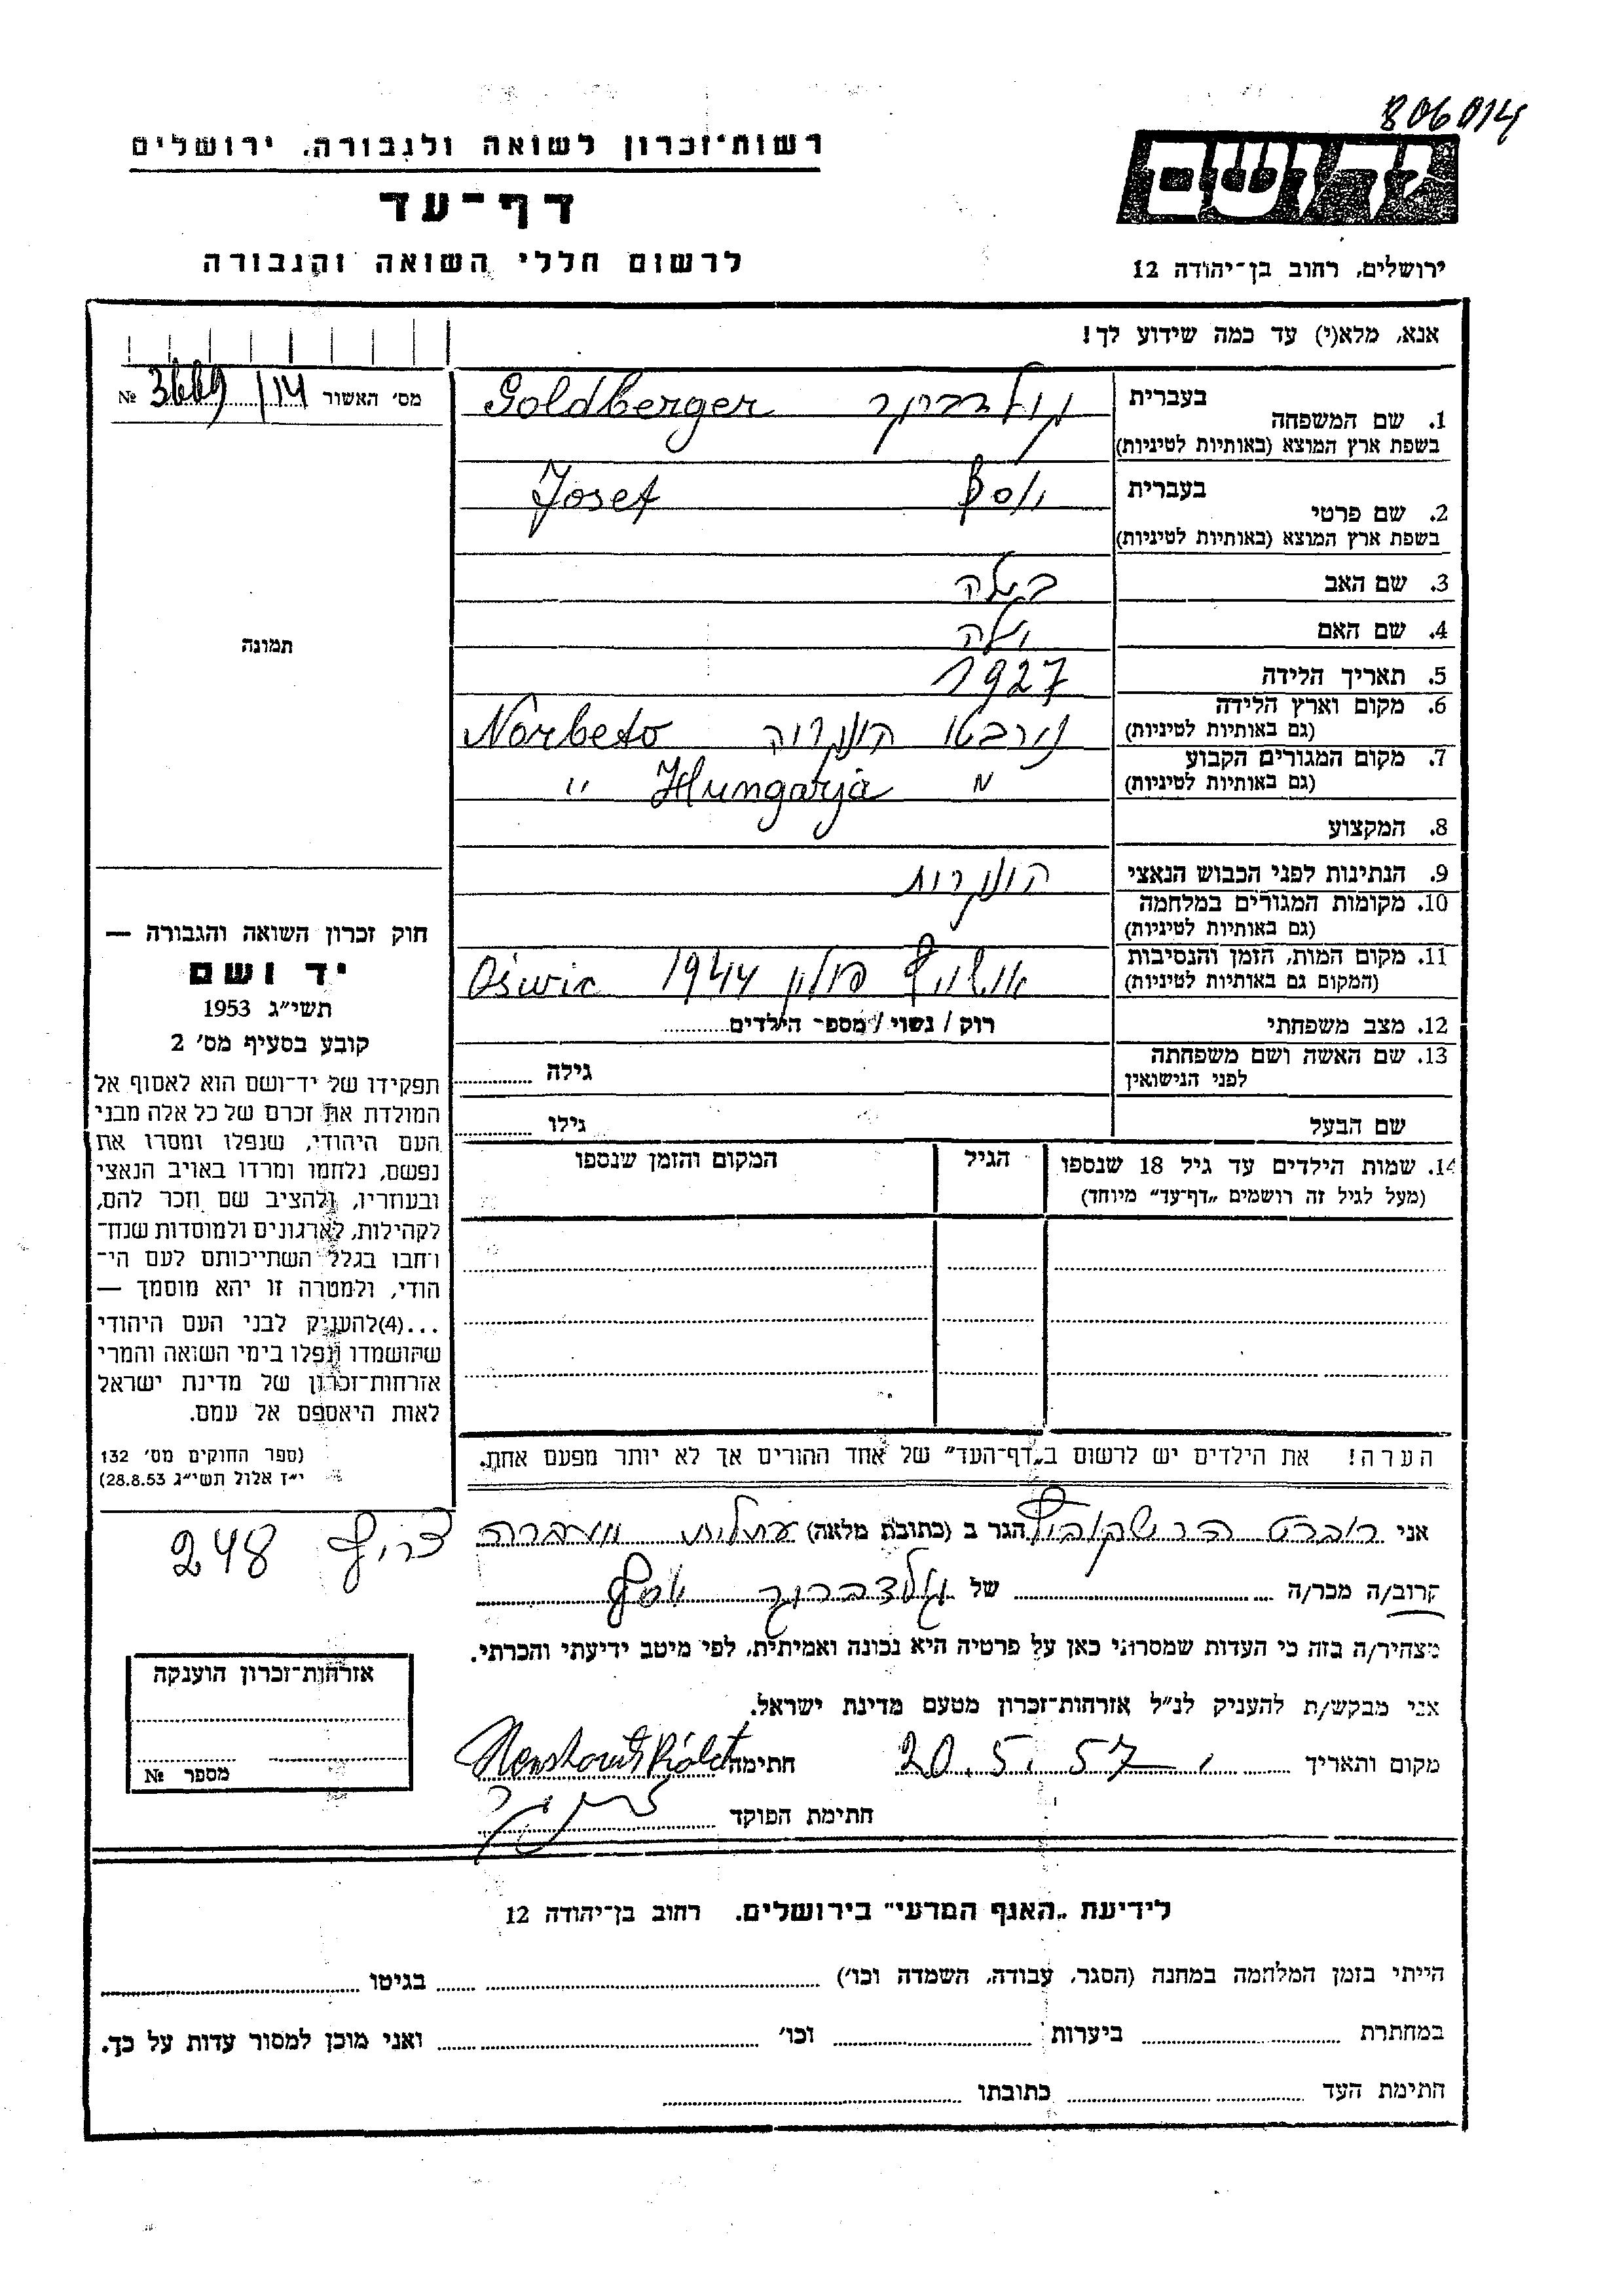 806014
רשות־זכרון לשואה ולגבורה, ירושלים
דף־עד
לרשום חללי השואה והגבורה
יד ושם
ירושלים, רחוב בן־יהודה 12
אנא, מלא(י) עד כמה שידוע לך!
מס׳ האשור 3669/14 №
1. שם המשפחה בעברית גולדברגר Goldberger
בשפת ארץ המוצא (באותיות לטיניות)
2. שם פרטי בעברית יוסף Josef
בשפת ארץ המוצא (באותיות לטיניות)
3. שם האב בלה
4. שם האם
5. תאריך הלידה 1927
6. מקום וארץ הלידה הונגריה Norbeto
(גם באותיות לטיניות)
7. מקום המגורים הקבוע " Hungarja "
(גם באותיות לטיניות)
8. המקצוע
9. הנתינות לפני הכבוש הנאצי הונגרית
10. מקומות המגורים במלחמה
(גם באותיות לטיניות)
11. מקום המות, הזמן והנסיבות אושויץ פולין 1944
(המקום גם באותיות לטיניות)
12. מצב משפחתי רוק / נשוי / מספר הילדים
13. שם האשה ושם משפחתה גילה
לפני הנישואין
שם הבעל גילו
14. שמות הילדים עד גיל 18 שנספו הגיל המקום והזמן שנספו
(מעל לגיל זה רושמים „דף־עד" מיוחד)
תמונה
חוק זכרון השואה והגבורה —
יד ושם
תשי״ג 1953
קובע בסעיף מס׳ 2
תפקידו של יד־ושם הוא לאסוף אל
המולדת את זכרם של כל אלה מבני
העם היהודי, שנפלו ומסרו את
נפשם, נלחמו ומרדו באויב הנאצי
ובעוזריו, ולהציב שם וזכר להם,
לקהילות, לארגונים ולמוסדות שנח־
רחבו בגלל השתייכותם לעם הי־
הודי, ולמטרה זו יהא מוסמך —
...(4)להעניק לבני העם היהודי
שהושמדו ונפלו בימי השואה והמרי
אזרחות־זכרון של מדינת ישראל
לאות היאספם אל עמם.
(ספר החוקים מס׳ 132
י״ז אלול תשי״ג 28.8.53)
הערה! את הילדים יש לרשום ב„דף־העד" של אחד ההורים אך לא יותר מפעם אחת.
אני הרשקוביץ הגר ב (כתובת מלאה) עתלית מעברה צריף 248
קרוב/ה מכר/ה של גולדברגר יוסף
מצהיר/ה בזה כי העדות שמסרתי כאן על פרטיה היא נכונה ואמיתית, לפי מיטב ידיעתי והכרתי.
אני מבקש/ת להעניק לנ״ל אזרחות־זכרון מטעם מדינת ישראל.
מקום ותאריך 20.5.57 חתימה
חתימת הפוקד
אזרחות־זכרון הוענקה
מספר №
לידיעת „האגף המדעי" בירושלים, רחוב בן־יהודה 12
הייתי בזמן המלחמה במחנה (הסגר, עבודה, השמדה וכו׳) בגיטו
במחתרת ביערות וכו׳ ואני מוכן למסור עדות על כך.
חתימת העד כתובתו